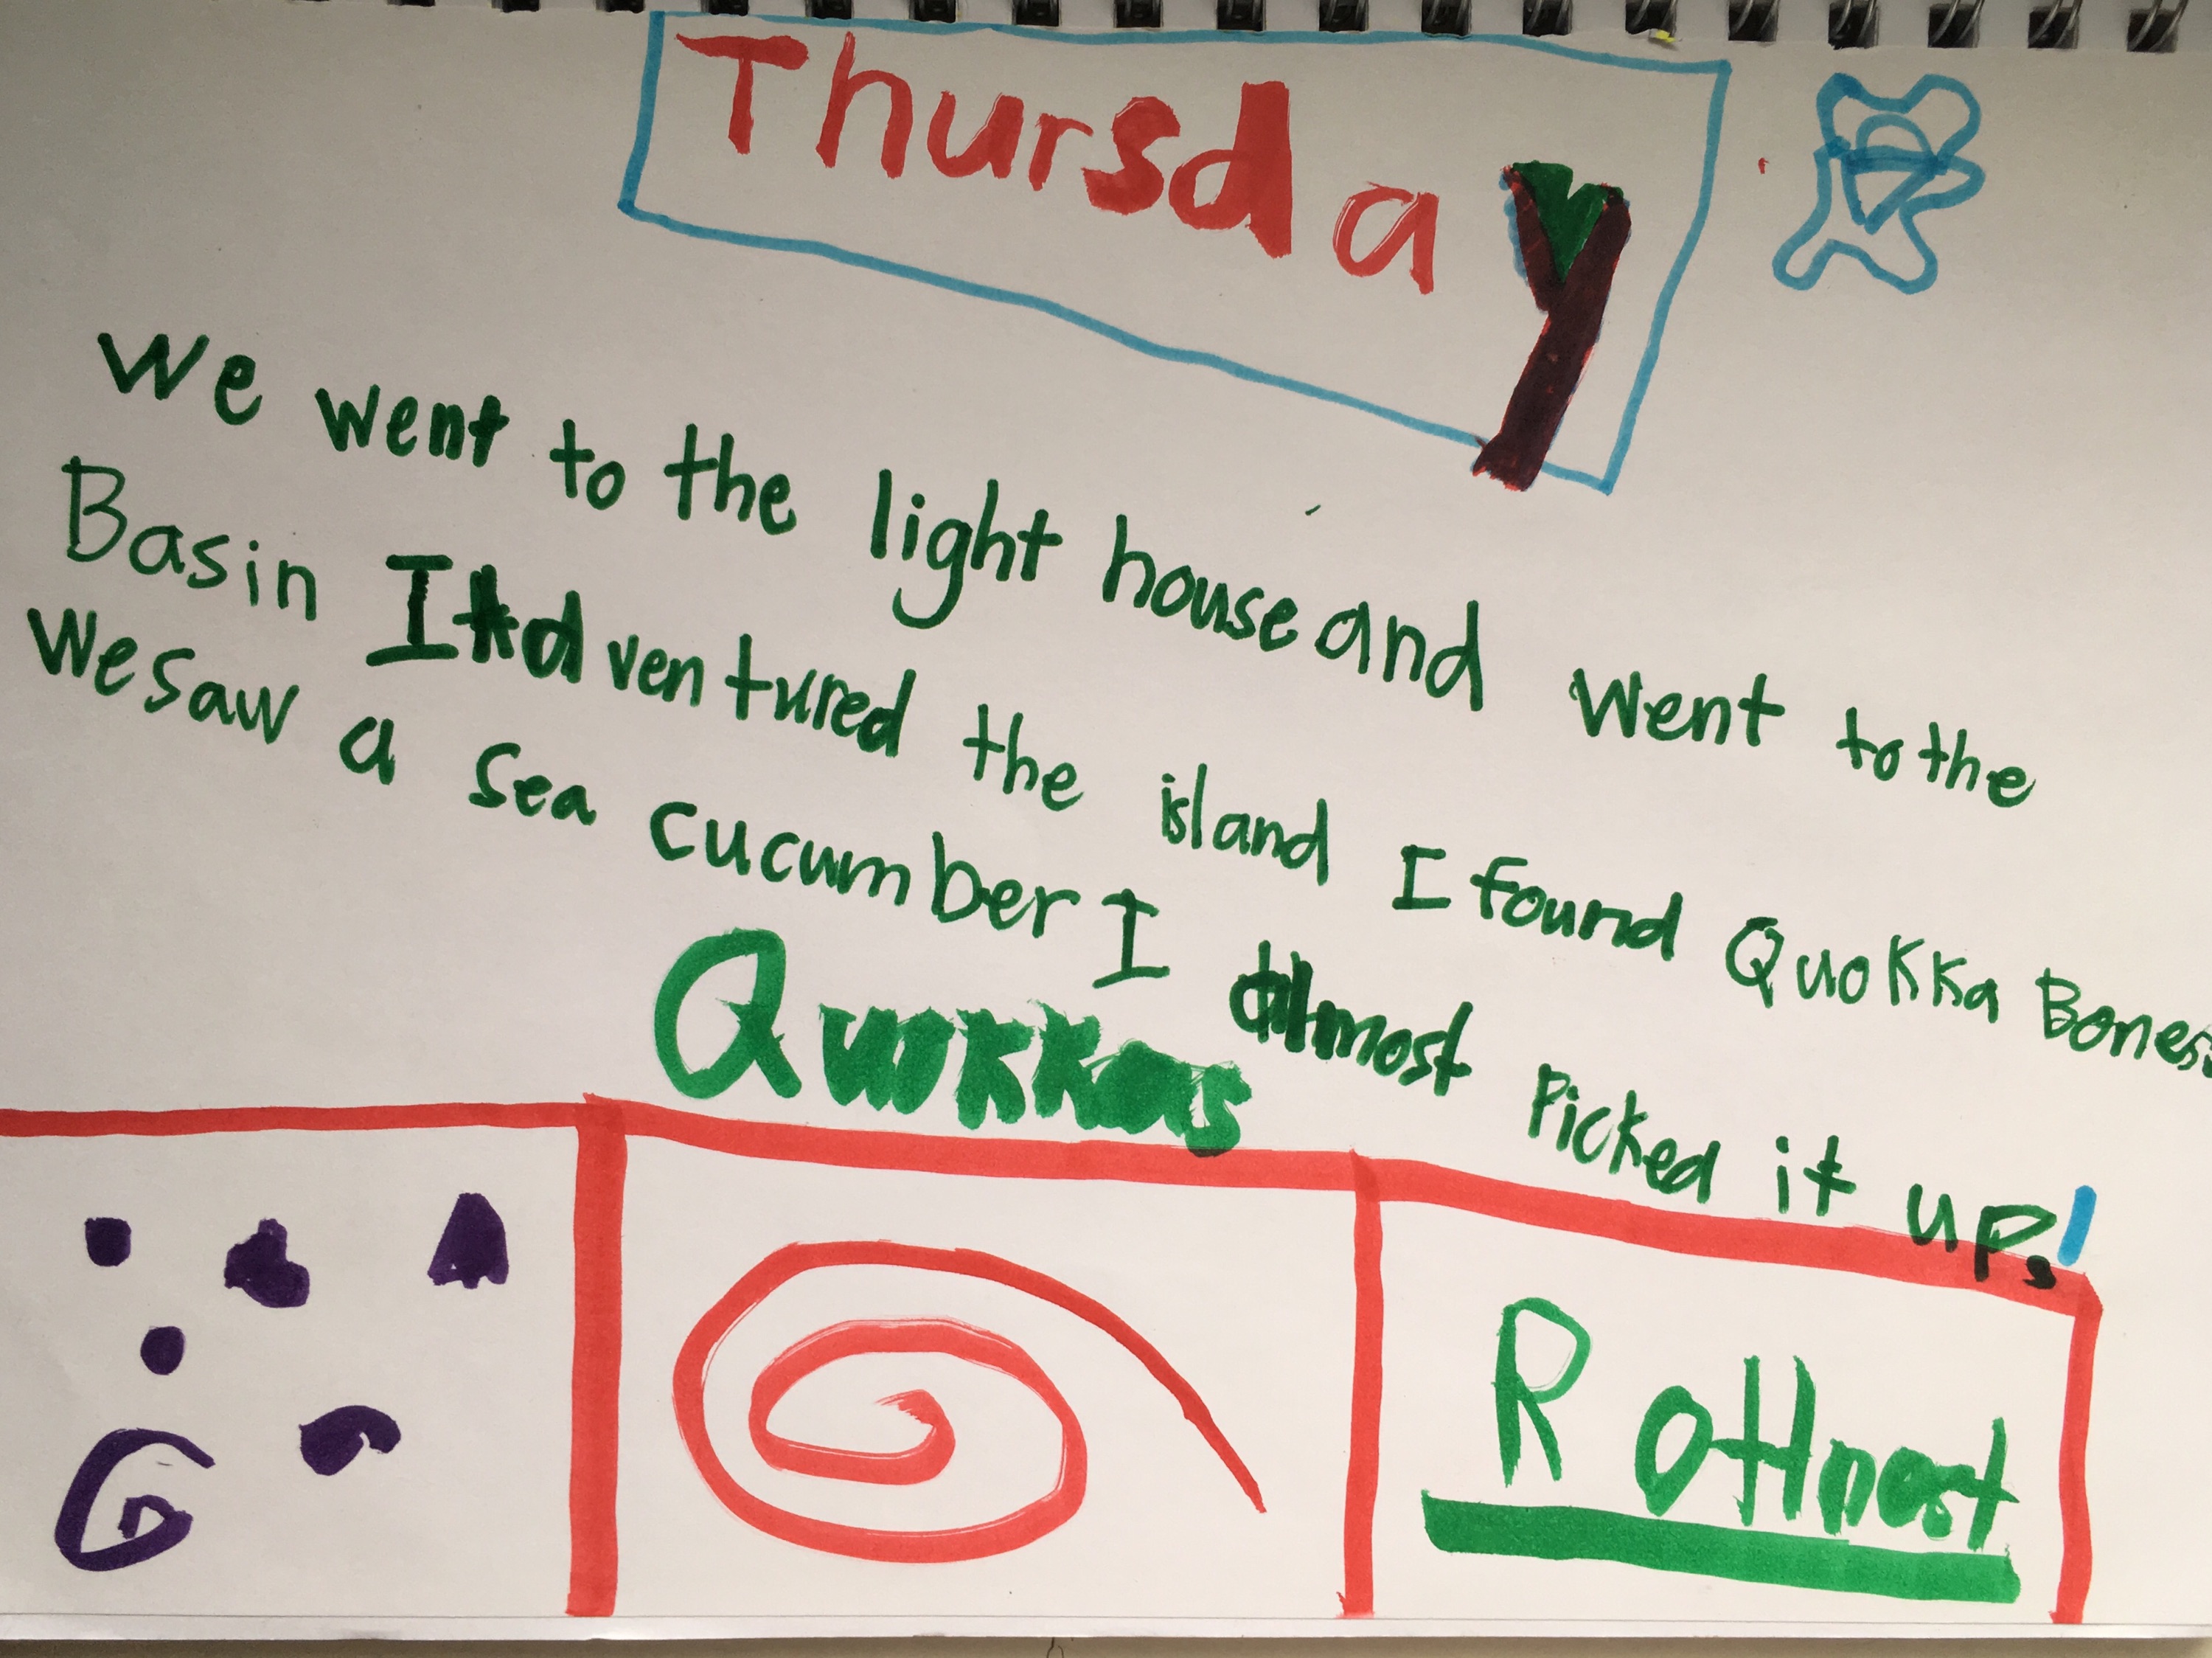 Thursday
We went to the light house and went to the
Basin I Adventured the island I found Quokka Bones
We saw a sea cucumber I almost Picked it up!
Quokkas
Rottnest